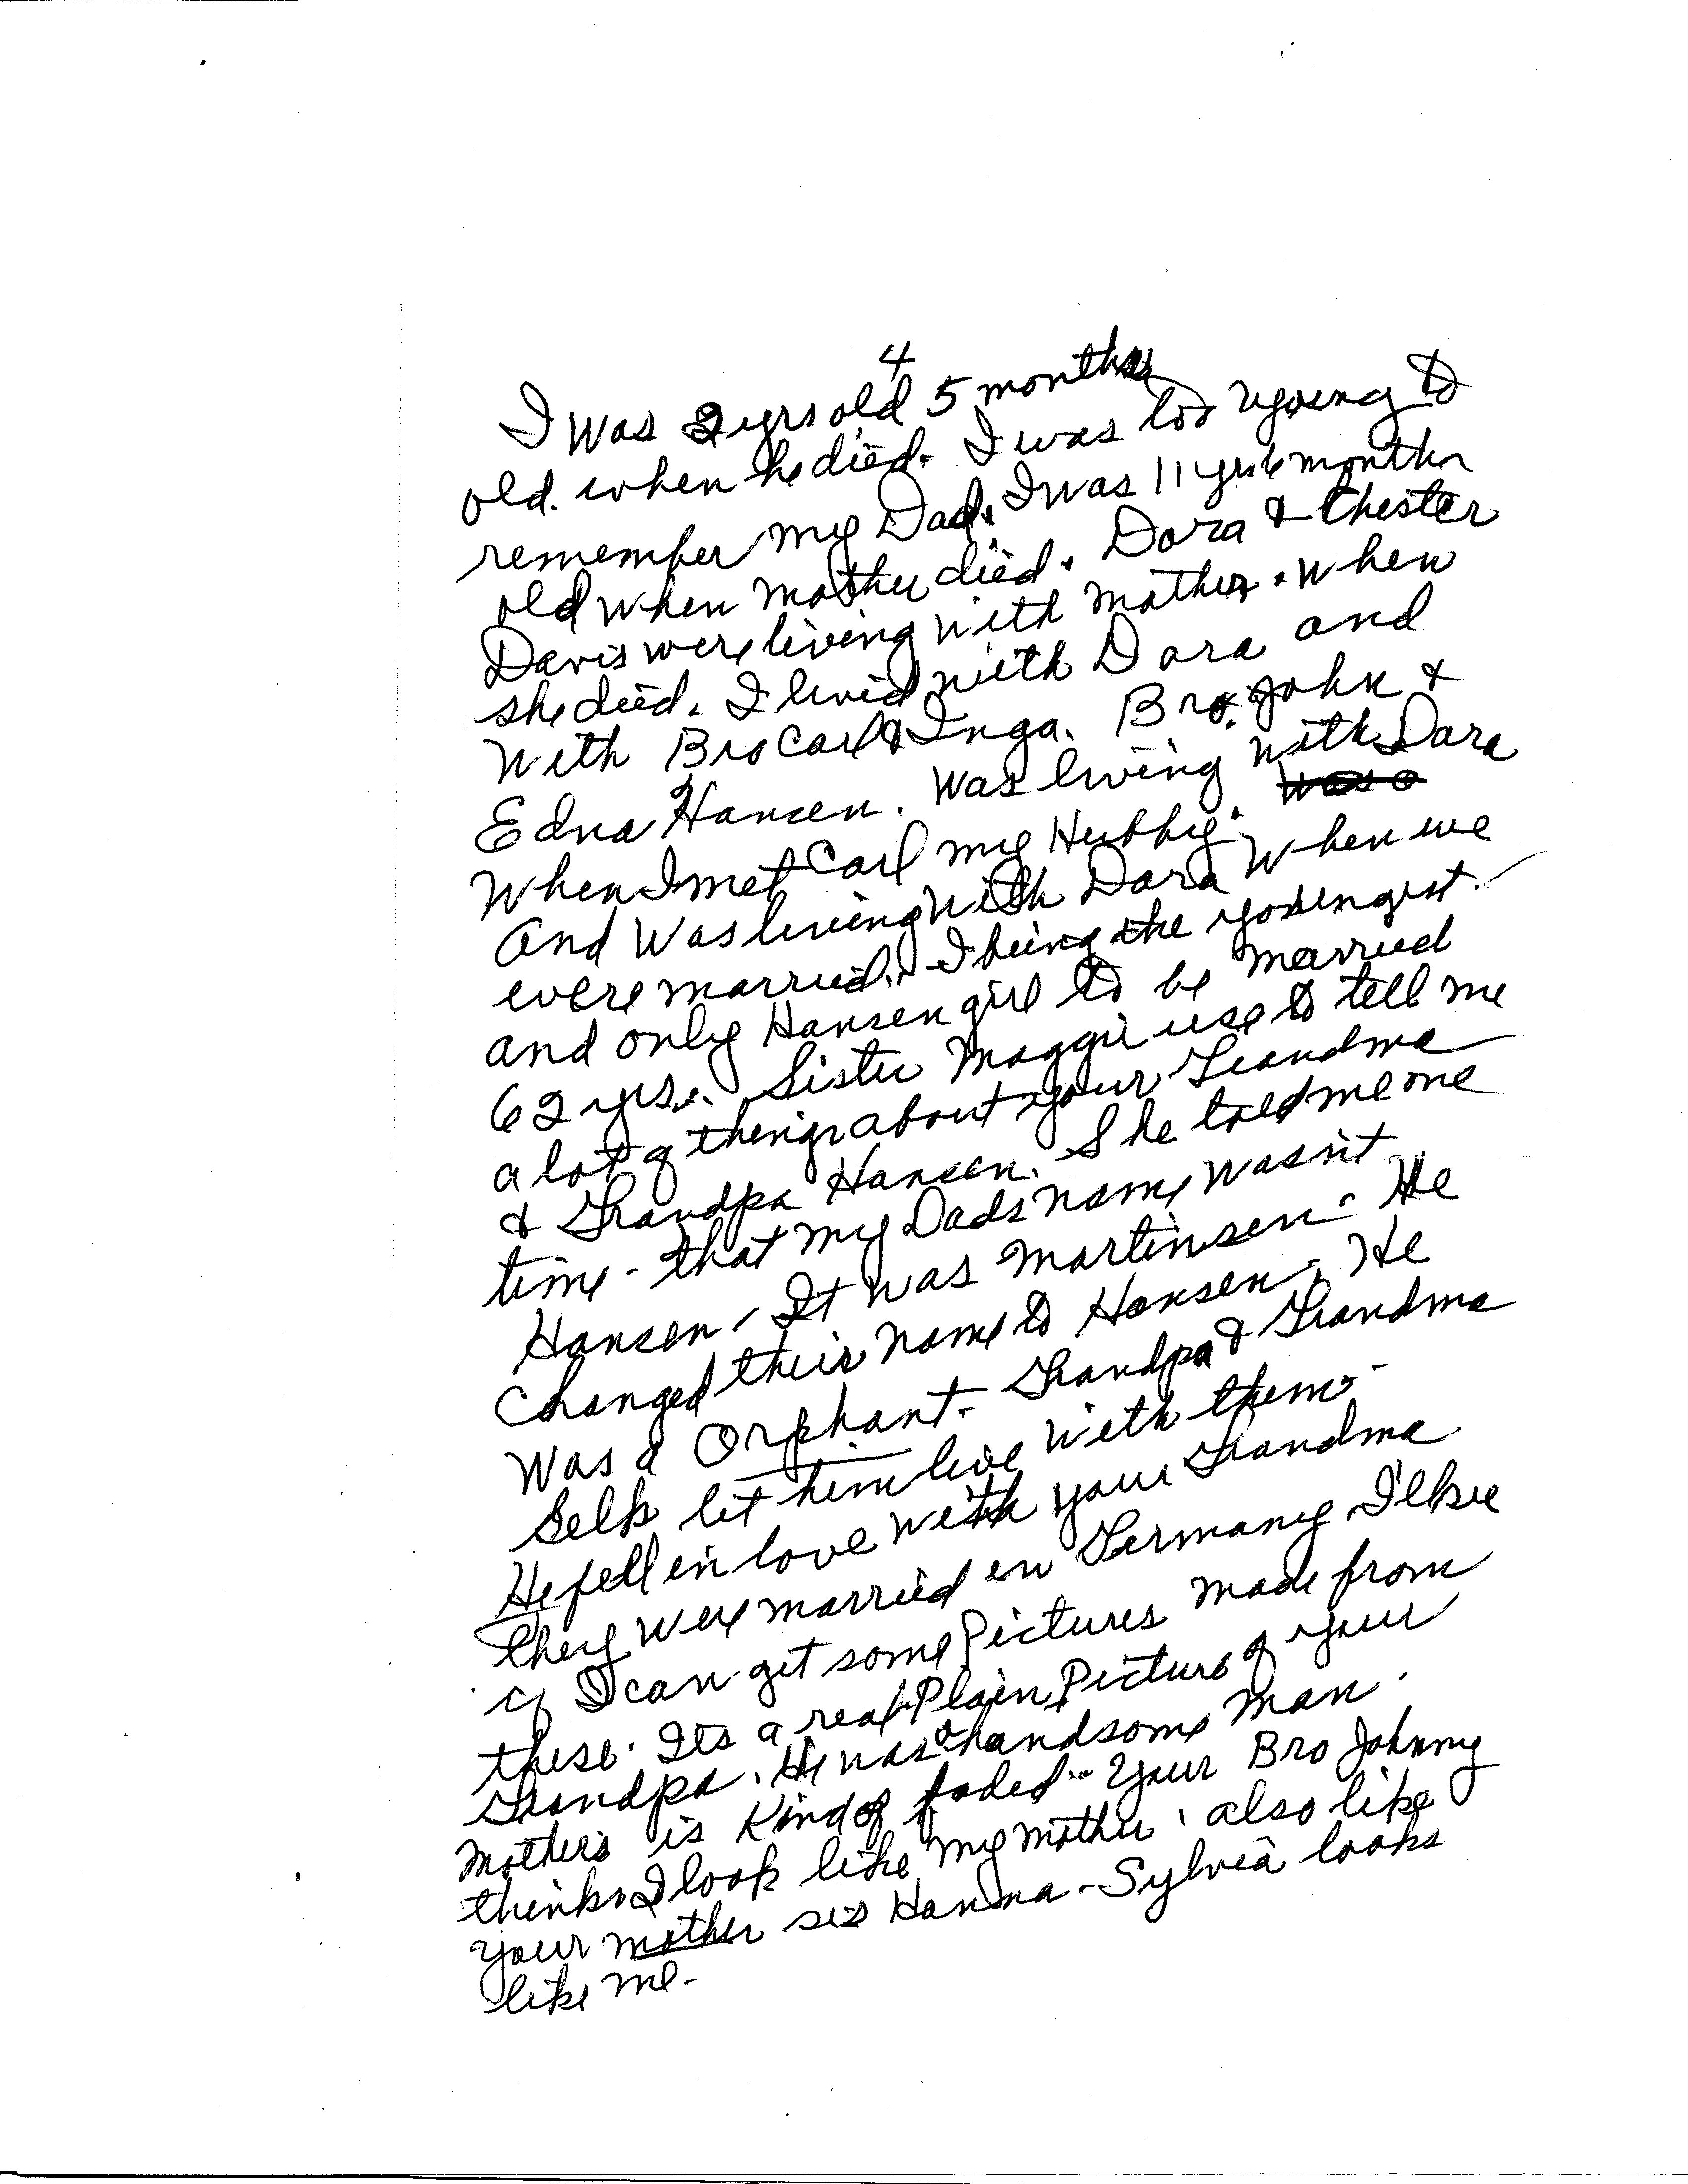 4
I was 2 yrs old 5 months
old. when he died. I was too young to
remember my Dad. I was 11 yrs 6 months
old when mother died. Dora & Chester
Davis were living with mother. when
she died. I lived with Dora and
with Bro Carl & Inga. Bro. John &
Edna Hansen. Was living with Dora
When I met Carl my Hubby. Was a
and Was living with Dora When we
were married. I being the youngest.
and only Hansen girl to be married
62 yrs. Sister Maggie use to tell me
a lot of things about your Grandma
& Grandpa Hansen. She told me one
time - that my Dads name wasn't
Hansen. It was Martinsen. He
changed their name to Hansen. He
Was a Orphant. Grandpa & Grandma
Selk let him live with them.
He fell in love with your Grandma
they were married in Germany I'll see
if I can get some Pictures made from
these. Its a real Plain Picture of your
Grandpa. He was a handsome man.
Mother's is kind of faded - Your Bro Johnny
thinks I look like my mother. also like
your mother sis Hanna - Sylvia looks
like me.